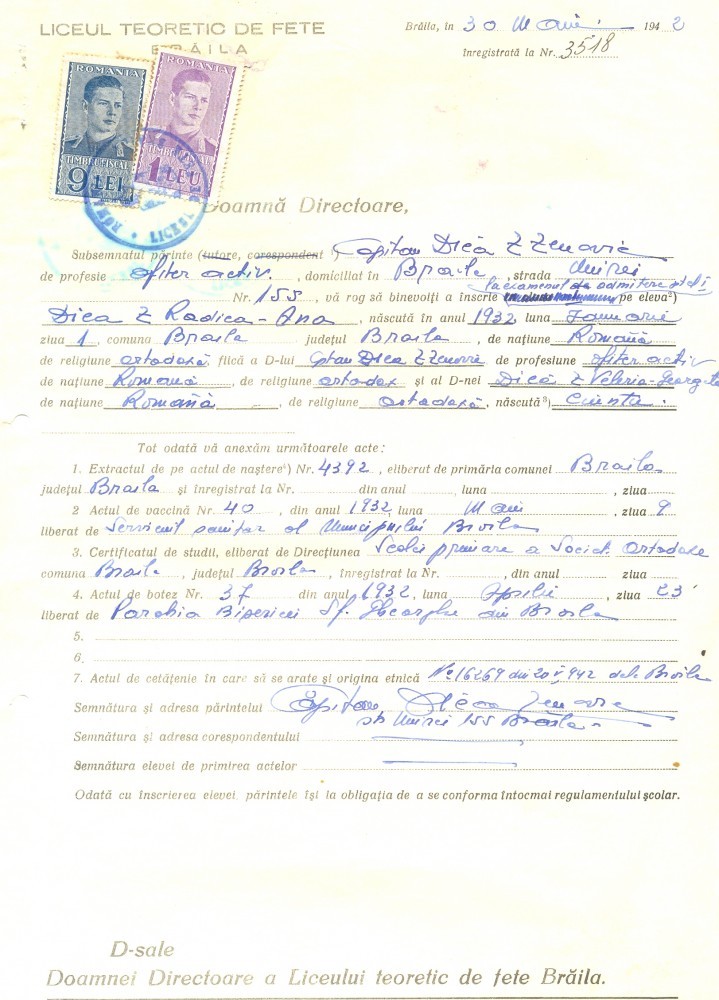 LICEUL TEORETIC DE FETE
BRĂILA
Brăila, în 30 Maiu 1942
înregistrată la Nr. 3518
ROMANIA
TIMBRU FISCAL
9 LEI
ROMANIA
TIMBRU FISCAL
1 LEU
Doamnă Directoare,
Subsemnatul părinte (tutore, corespondent) Capitan Dică Z Zenovie
de profesie ofiter activ, domiciliat în Braila, strada Unirei
Nr. 155, vă rog să binevoiți a înscrie la examenul de admitere pe eleva²)
Dica Z Radica-Ana, născută în anul 1932 luna Ianuarie
ziua 1, comuna Braila județul Braila, de națiune Română
de religiune ortodoxă, fiică a D-lui Cpitan Dica Z Zenovie de profesiune ofiter activ
de națiune Romană, de religiune ortodox și al D-nei Dică Z Valeria-Georgeta
de națiune Română, de religiune ortodoxă, născută³)
Tot odată vă anexăm următoarele acte:
1. Extractul de pe actul de naștere⁴) Nr. 4392, eliberat de primăria comunei Braila
județul Braila și înregistrat la Nr. din anul , luna , ziua
2 Actul de vaccină Nr. 40, din anul 1932, luna Maiu , ziua 9
liberat de Serviciul sanitar al Municipiului Braila
3. Certificatul de studii, eliberat de Direcțiunea Scolii primare a Societ. Ortodoxe
comuna Braila, județul Braila, înregistrat la Nr. , din anul ziua
4. Actul de botez Nr. 37 din anul 1932, luna Aprilie , ziua 23
liberat de Parohia Bisericei Sf. Gheorghe din Braila
5.
6.
7. Actul de cetățenie în care să se arate și origina etnică No 16269 din 20 V 942 dela Braila
Semnătura și adresa părintelui Capitan Dica Zenovie
str Unirei 155 Braila
Semnătura și adresa corespondentului
Semnătura elevei de primirea actelor
Odată cu înscrierea elevei, părintele își ia obligația de a se conforma întocmai regulamentului școlar.
D-sale
Doamnei Directoare a Liceului teoretic de fete Brăila.